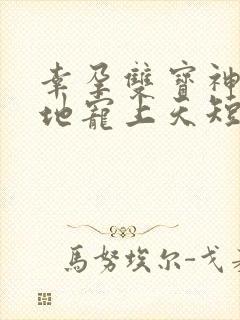 幸孕雙寶神
地寵上天短
馬努埃尔-戈